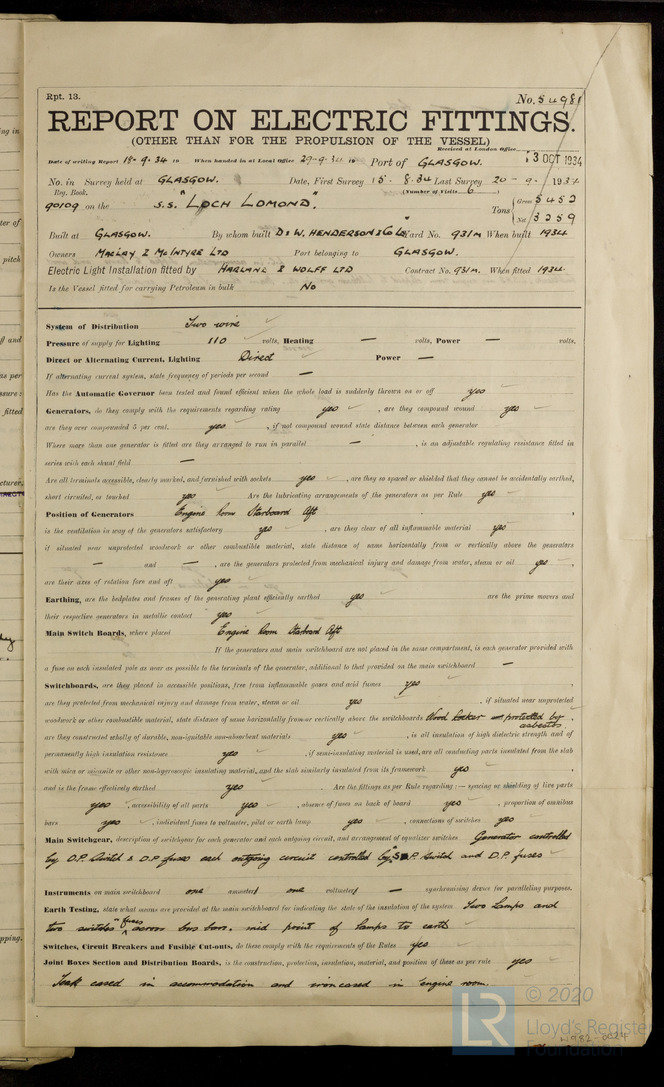 Rpt. 13.
No. 54981
REPORT ON ELECTRIC FITTINGS.
(OTHER THAN FOR THE PROPULSION OF THE VESSEL)
Received at London Office
13 OCT 1934
Date of writing Report 18.9.34 When handed in at Local Office 29.9.34 Port of GLASGOW.
No. in Survey held at GLASGOW. Date, First Survey 15. 8.34 Last Survey 20-9-1934
Reg. Book. (Number of Visits 6)
90109 on the S.S. "LOCH LOMOND". Tons { Gross 5452
Net 3259
Built at GLASGOW. By whom built D & W. HENDERSON & Co Ld Yard No. 931M When built 1934
Owners MACLAY & McINTYRE LTD Port belonging to GLASGOW.
Electric Light Installation fitted by HARLAND & WOLFF LTD Contract No. 931M. When fitted 1934
Is the Vessel fitted for carrying Petroleum in bulk No
System of Distribution Two wire
Pressure of supply for Lighting 110 volts, Heating — volts, Power — volts.
Direct or Alternating Current, Lighting Direct Power —
If alternating current system, state frequency of periods per second —
Has the Automatic Governor been tested and found efficient when the whole load is suddenly thrown on or off yes
Generators, do they comply with the requirements regarding rating yes, are they compound wound yes
are they over compounded 5 per cent. yes, if not compound wound state distance between each generator
Where more than one generator is fitted are they arranged to run in parallel —, is an adjustable regulating resistance fitted in
series with each shunt field —
Are all terminals accessible, clearly marked, and furnished with sockets yes, are they so spaced or shielded that they cannot be accidentally earthed,
short circuited, or touched yes Are the lubricating arrangements of the generators as per Rule yes
Position of Generators Engine Room Starboard Aft
is the ventilation in way of the generators satisfactory yes, are they clear of all inflammable material yes
if situated near unprotected woodwork or other combustible material, state distance of same horizontally from or vertically above the generators
— and —, are the generators protected from mechanical injury and damage from water, steam or oil yes,
are their axes of rotation fore and aft yes
Earthing, are the bedplates and frames of the generating plant efficiently earthed yes are the prime movers and
their respective generators in metallic contact yes
Main Switch Boards, where placed Engine Room Starboard Aft
If the generators and main switchboard are not placed in the same compartment, is each generator provided with
a fuse on each insulated pole as near as possible to the terminals of the generator, additional to that provided on the main switchboard —
Switchboards, are they placed in accessible positions, free from inflammable gases and acid fumes yes,
are they protected from mechanical injury and damage from water, steam or oil yes, if situated near unprotected
woodwork or other combustible material, state distance of same horizontally from or vertically above the switchboards Wood protected by asbestos,
are they constructed wholly of durable, non-ignitable non-absorbent materials yes, is all insulation of high dielectric strength and of
permanently high insulation resistance yes, if semi-insulating material is used, are all conducting parts insulated from the slab
with mica or micanite or other non-hygroscopic insulating material, and the slab similarly insulated from its framework yes,
and is the frame effectively earthed yes. Are the fittings as per Rule regarding:— spacing or shielding of live parts
yes, accessibility of all parts yes, absence of fuses on back of board yes, proportion of omnibus
bars yes, individual fuses to voltmeter, pilot or earth lamp yes, connections of switches yes
Main Switchgear, description of switchgear for each generator and each outgoing circuit, and arrangement of equalizer switches Generator controlled
by D.P. Switch & D.P fuses each outgoing circuit controlled by S.P. Switch and D.P. fuses
Instruments on main switchboard one ammeter one voltmeter — synchronising device for paralleling purposes.
Earth Testing, state what means are provided at the main switchboard for indicating the state of the insulation of the system Two Lamps and
two switches & fuses across bus bars. mid point of lamps to earth
Switches, Circuit Breakers and Fusible Cut-outs, do these comply with the requirements of the Rules yes
Joint Boxes Section and Distribution Boards, is the construction, protection, insulation, material, and position of these as per rule yes
Teak cased in accommodation and iron cased in engine room.
© 2020
Lloyd's Register
Foundation